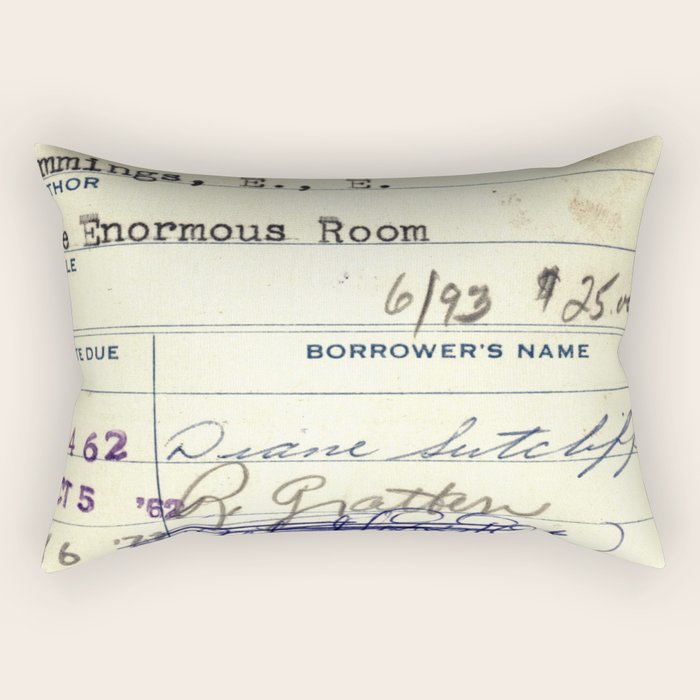 mmings, E., E.
THOR
e Enormous Room
LE
6/93 $25.00
TE DUE BORROWER'S NAME
4 62 Diane Sutcliff
CT 5 '62 R. Gratten
6 '72